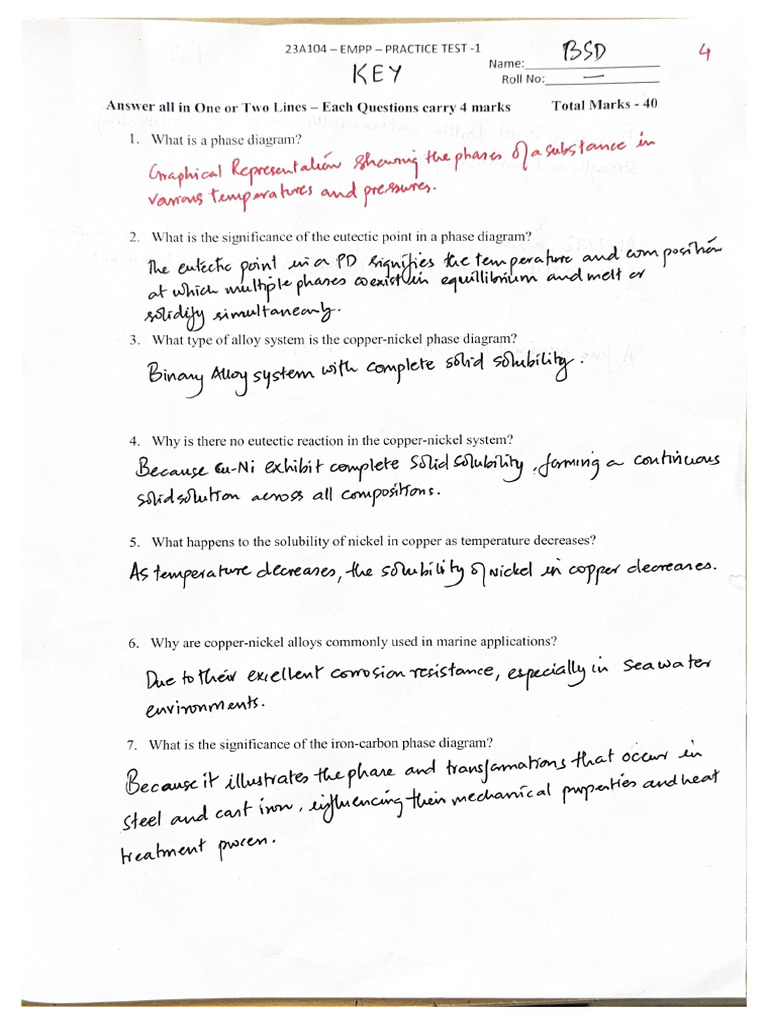 23A104 – EMPP – PRACTICE TEST -1
KEY
Name: BSD
4
Roll No: —
Answer all in One or Two Lines – Each Questions carry 4 marks Total Marks - 40
1. What is a phase diagram?
Graphical Representation showing the phases of a substance in
various temperatures and pressures.
2. What is the significance of the eutectic point in a phase diagram?
The eutectic point in a PD signifies the temperature and composition
at which multiple phases coexist in equillibrium and melt or
solidify simultaneously.
3. What type of alloy system is the copper-nickel phase diagram?
Binary Alloy system with complete solid solubility.
4. Why is there no eutectic reaction in the copper-nickel system?
Because Cu-Ni exhibit complete solid solubility, forming a continuous
solid solution across all compositions.
5. What happens to the solubility of nickel in copper as temperature decreases?
As temperature decreases, the solubility of Nickel in copper decreases.
6. Why are copper-nickel alloys commonly used in marine applications?
Due to their excellent corrosion resistance, especially in sea water
environments.
7. What is the significance of the iron-carbon phase diagram?
Because it illustrates the phase and transformations that occur in
steel and cast iron, influencing their mechanical properties and heat
treatment process.